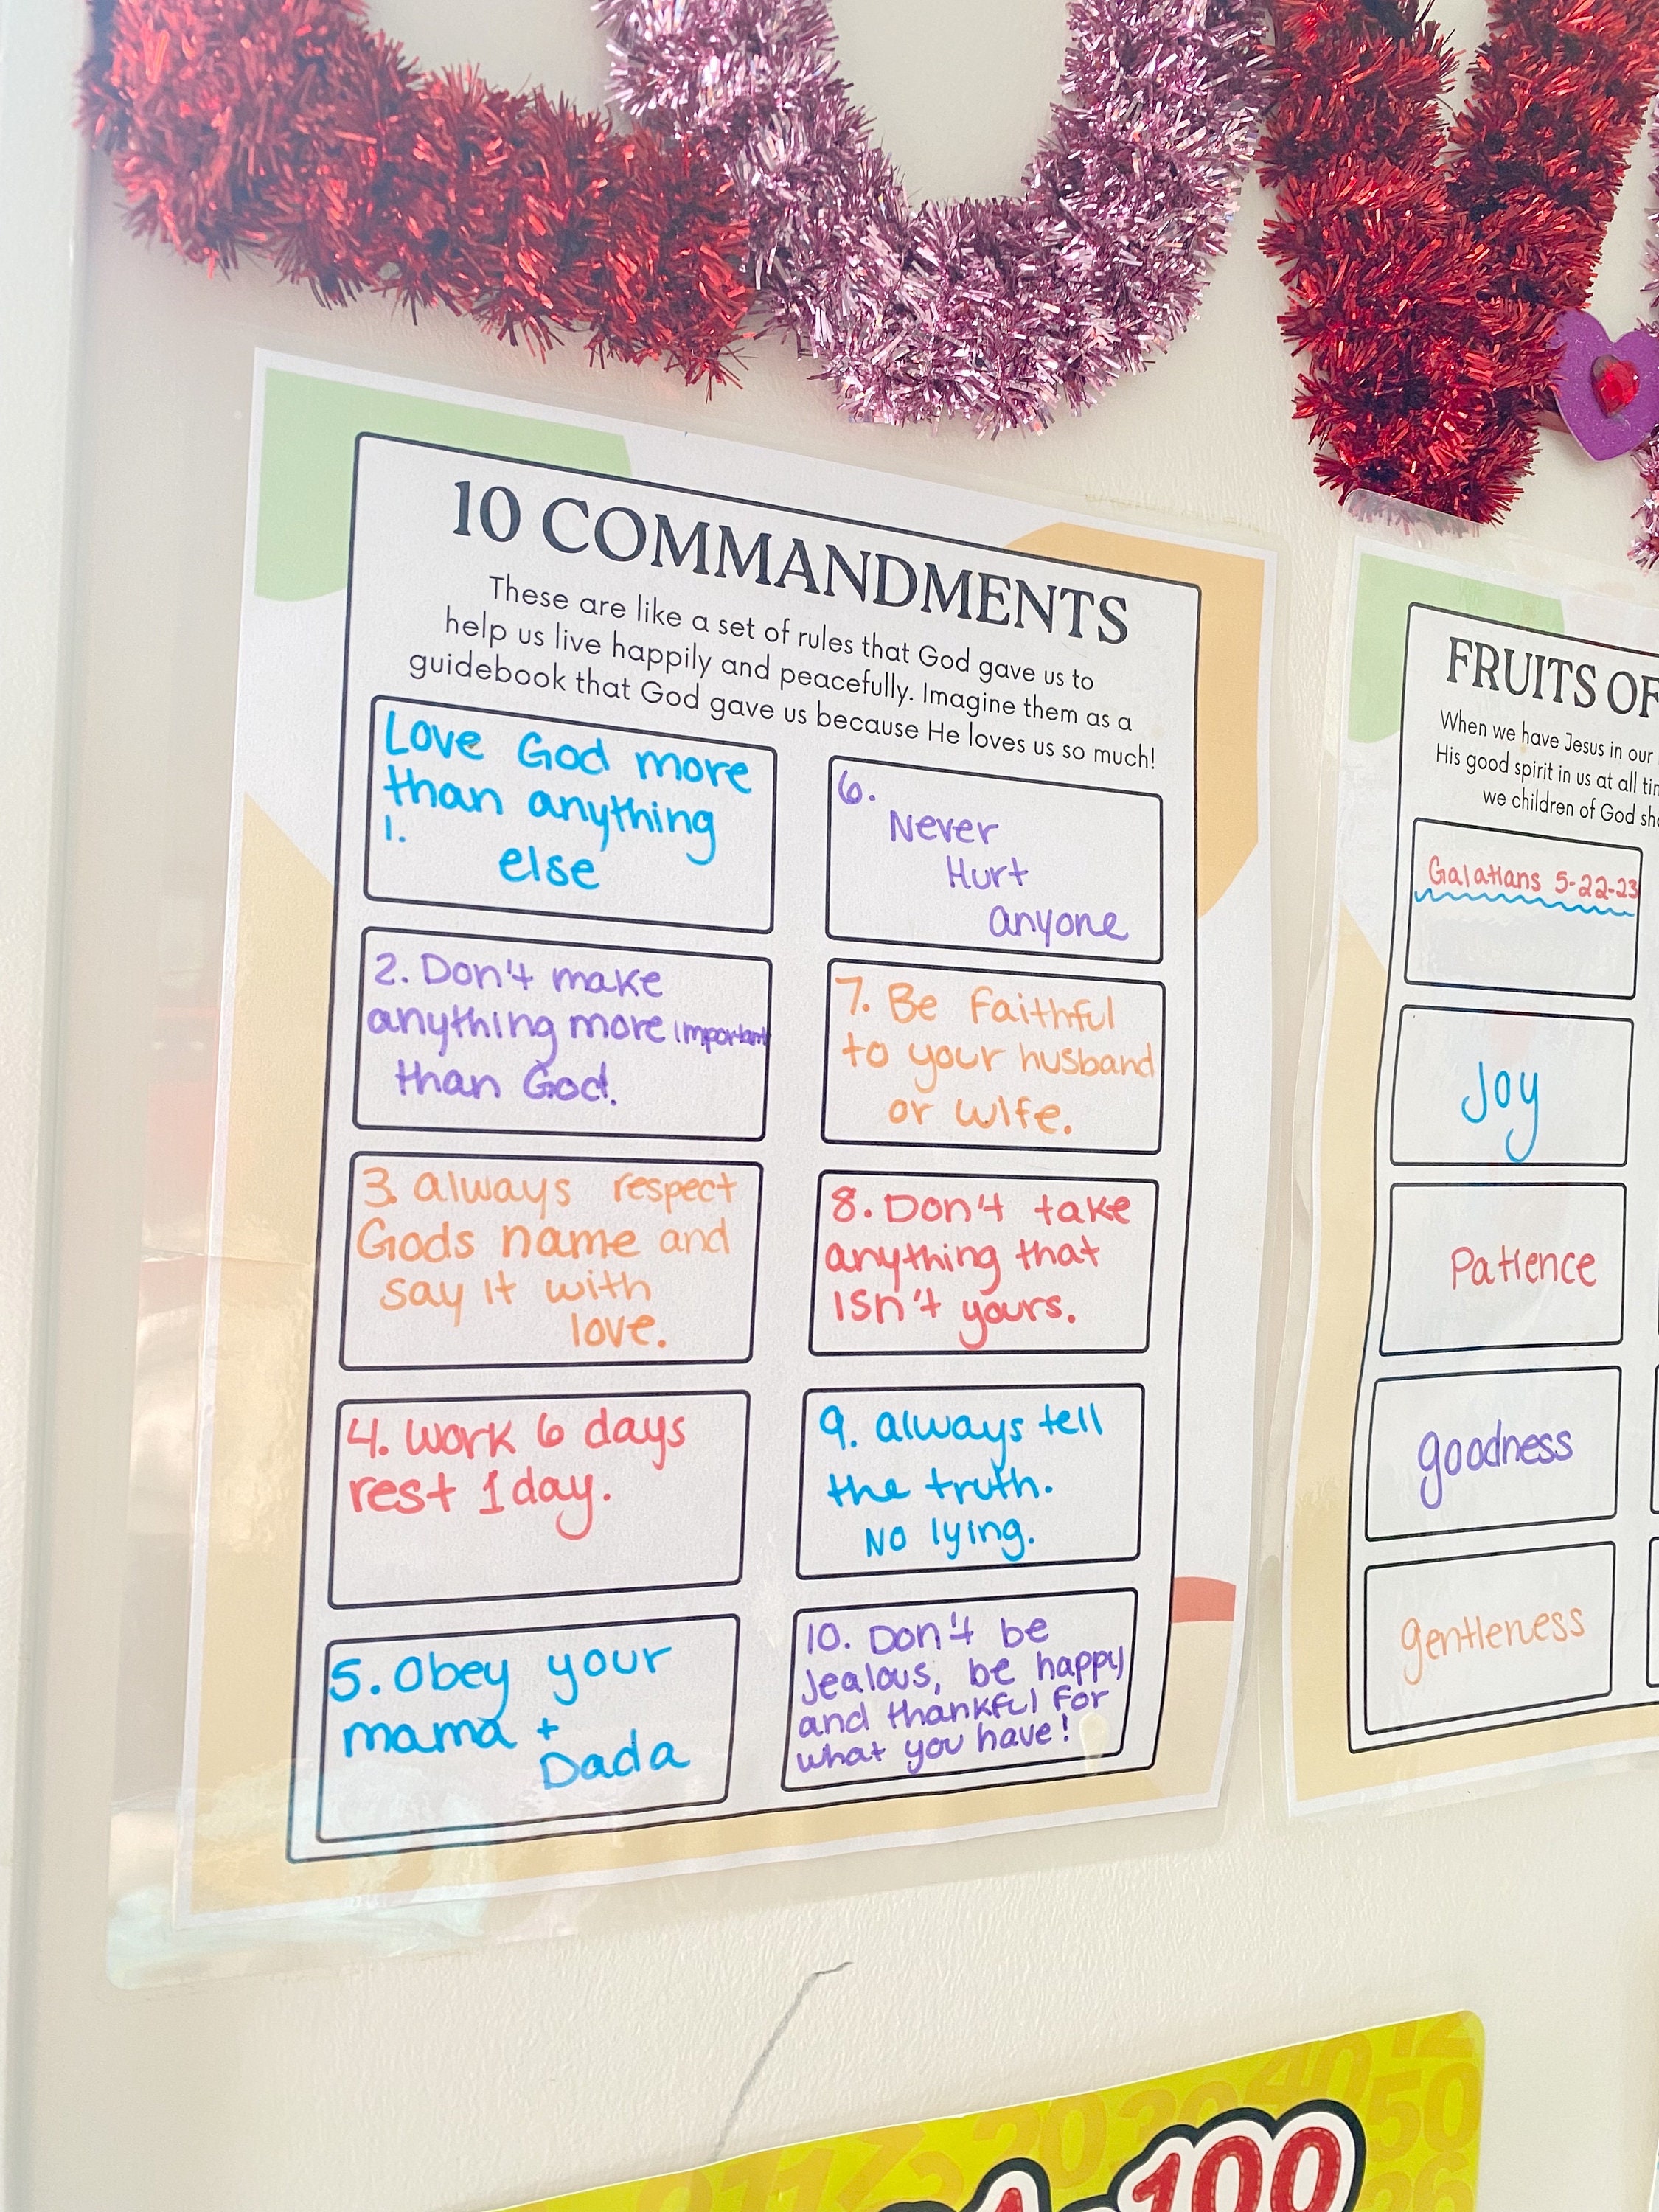 10 COMMANDMENTS
These are like a set of rules that God gave us to
help us live happily and peacefully. Imagine them as a
guidebook that God gave us because He loves us so much!
Love God more
than anything
1.
else
2. Don't make
anything more important
than God.
3. always respect
Gods name and
say it with
love.
4. Work 6 days
rest 1 day.
5. Obey your
mama +
Dada
6.
Never
Hurt
anyone
7. Be Faithful
to your husband
or wife.
8. Don't take
anything that
isn't yours.
9. always tell
the truth.
No lying.
10. Don't be
Jealous, be happy
and thankful for
what you have!
FRUITS OF
When we have Jesus in our
His good spirit in us at all
we children of God
Galatians 5-22-23
Joy
Patience
goodness
gentleness
100